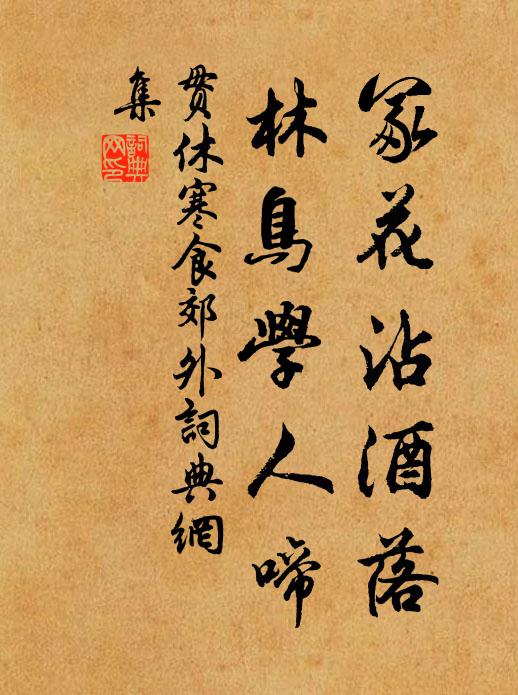 冢花沾酒落
林鳥學人啼
貫休寒食郊外詞典網
集
詞典
网印